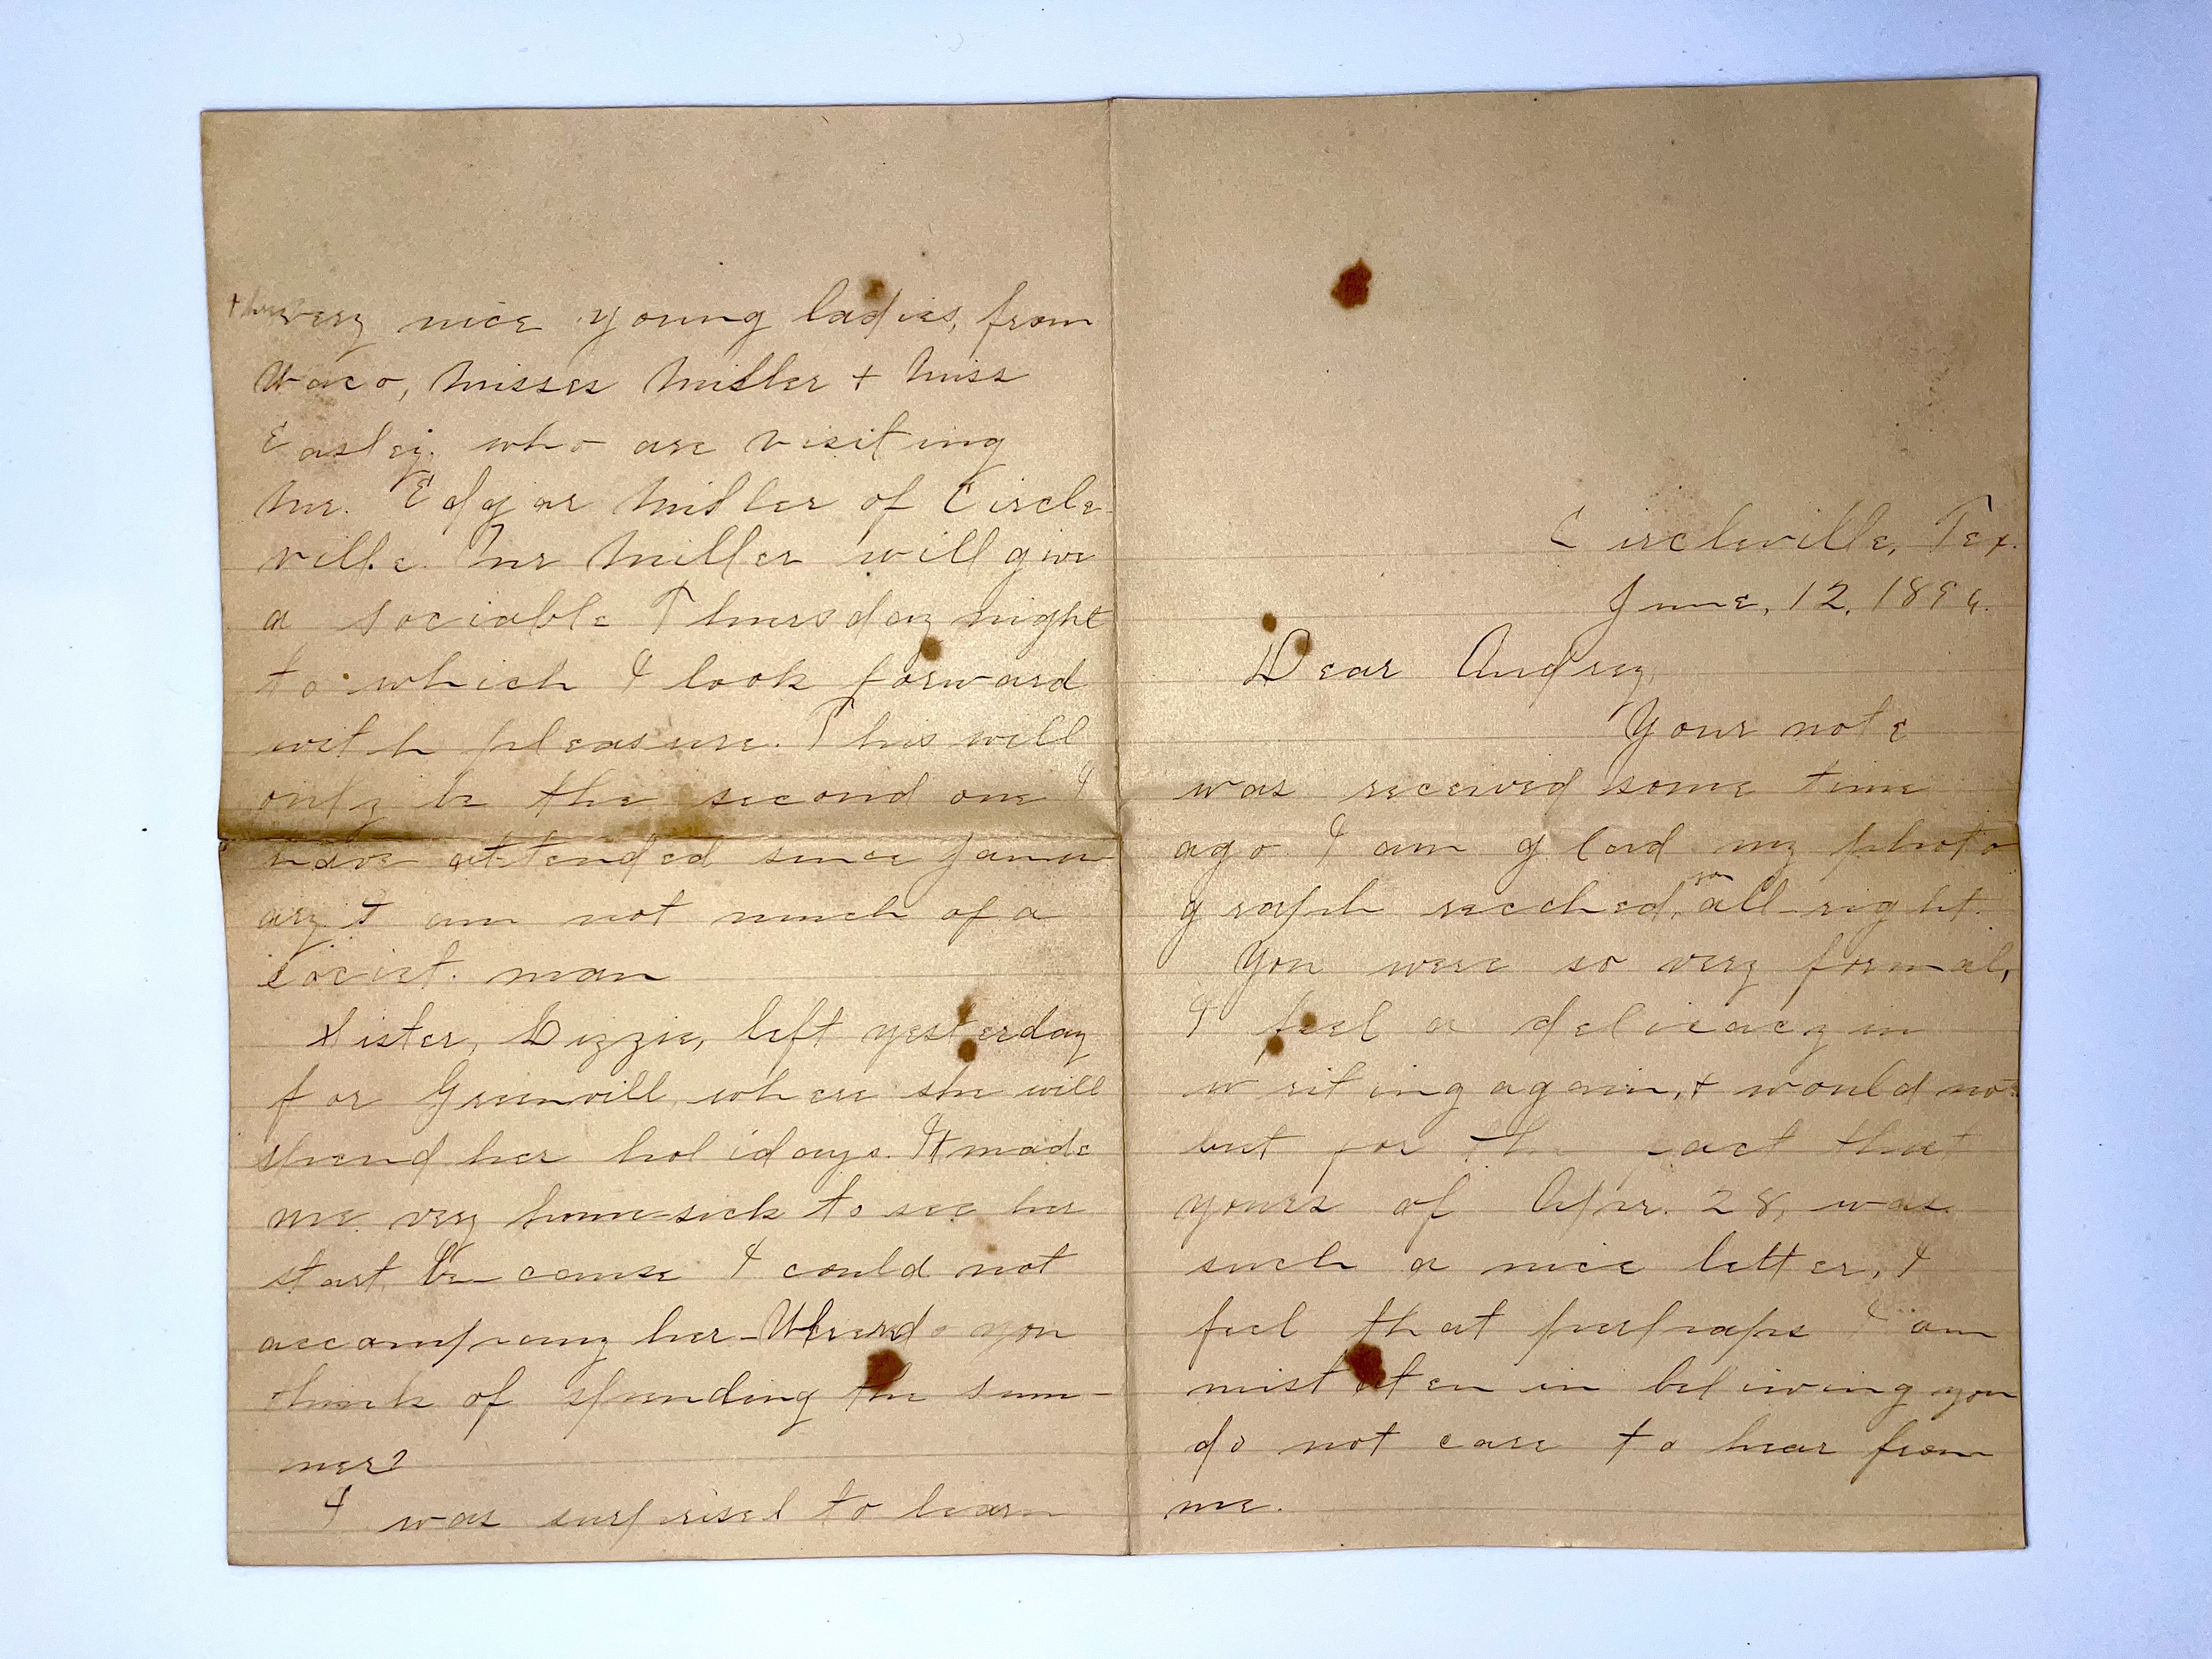 Circleville, Tex.
June, 12, 1896.
Dear Audrey,
Your note
was received some time
ago I am glad my photo
graph recched, you all-right.
You were so very formal,
I feel a delicacy in
writing again, + would not
but for the fact that
yours of Apr. 28, was
such a nice letter, I
feel that perhaps I am
mistaten in beliving you
do not care to hear from
me.
very nice young ladies, from
Waco, Misses Miller + Miss
Easley. who are visiting
Mr. Edgar Miller of Circle-
ville. Mr Miller will give
a sociable Thursday night
to which I look forward
with pleasure. This will
only be the second one I
have attended since Janu-
ary I am not much of a
societ. man
Sister, Lizzie, left yesterday
for Greenvill, where she will
spend her holidays. It made
me very home-sick to see her
start, because I could not
accompany her - Where do you
think of spending the sum-
mer?
I was surprised to learn